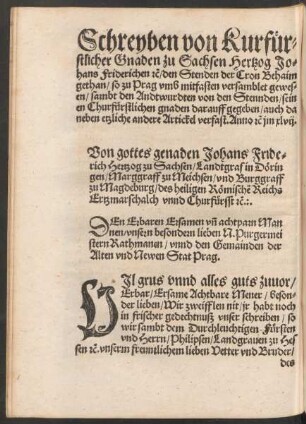 Schreyben von Kurfür-
stlicher Gnaden zu Sachsen Hertzog Jo-
hans Friderichen ꝛc̄/den Stenden der Cron Behaim
gethan/so zu Prag vmb mitfasten versamblet gewes-
sen/sambt den Andtwurdten von den Stenndten/sein
en Churfürstlichen gnaden darauff gegeben/auch da
neben etzliche andere Artickel verfast. Anno ꝛc̄ jm xlvij.
Von gottes genaden Johans Fride-
rich Hertzog zu Sachsen/Landtgraf in Döring
gen/Marggraff zu Meichsen/vnd Burggraff
zu Magdeburg/des heiligen Römische Reichs
Ertzmarschalch vnnd Churfürst ꝛc̄.:.
DEn Erbaren Ersamen vñ achtparn Man
nen/vnsern besondern lieben N. Purgermei
stern Rathmanen/vnnd den Gemainden der
Alten vnd Newen Stat Prag.
VIl grus vnnd alles guts zuuor/
Erbar/Ersame Achtbare Mener/beson-
der lieben/Wir zweifflen nit/jr habt noch
in frischer gedechtnuß vnser schreiben/so
wir sambt dem Durchleuchtigen Fürsten
vnd Herrn/Philipsen/Landgrauen zu Hes
sen ꝛc̄. vnserm freuntlichem lieben Vetter vnd Bruder/
des